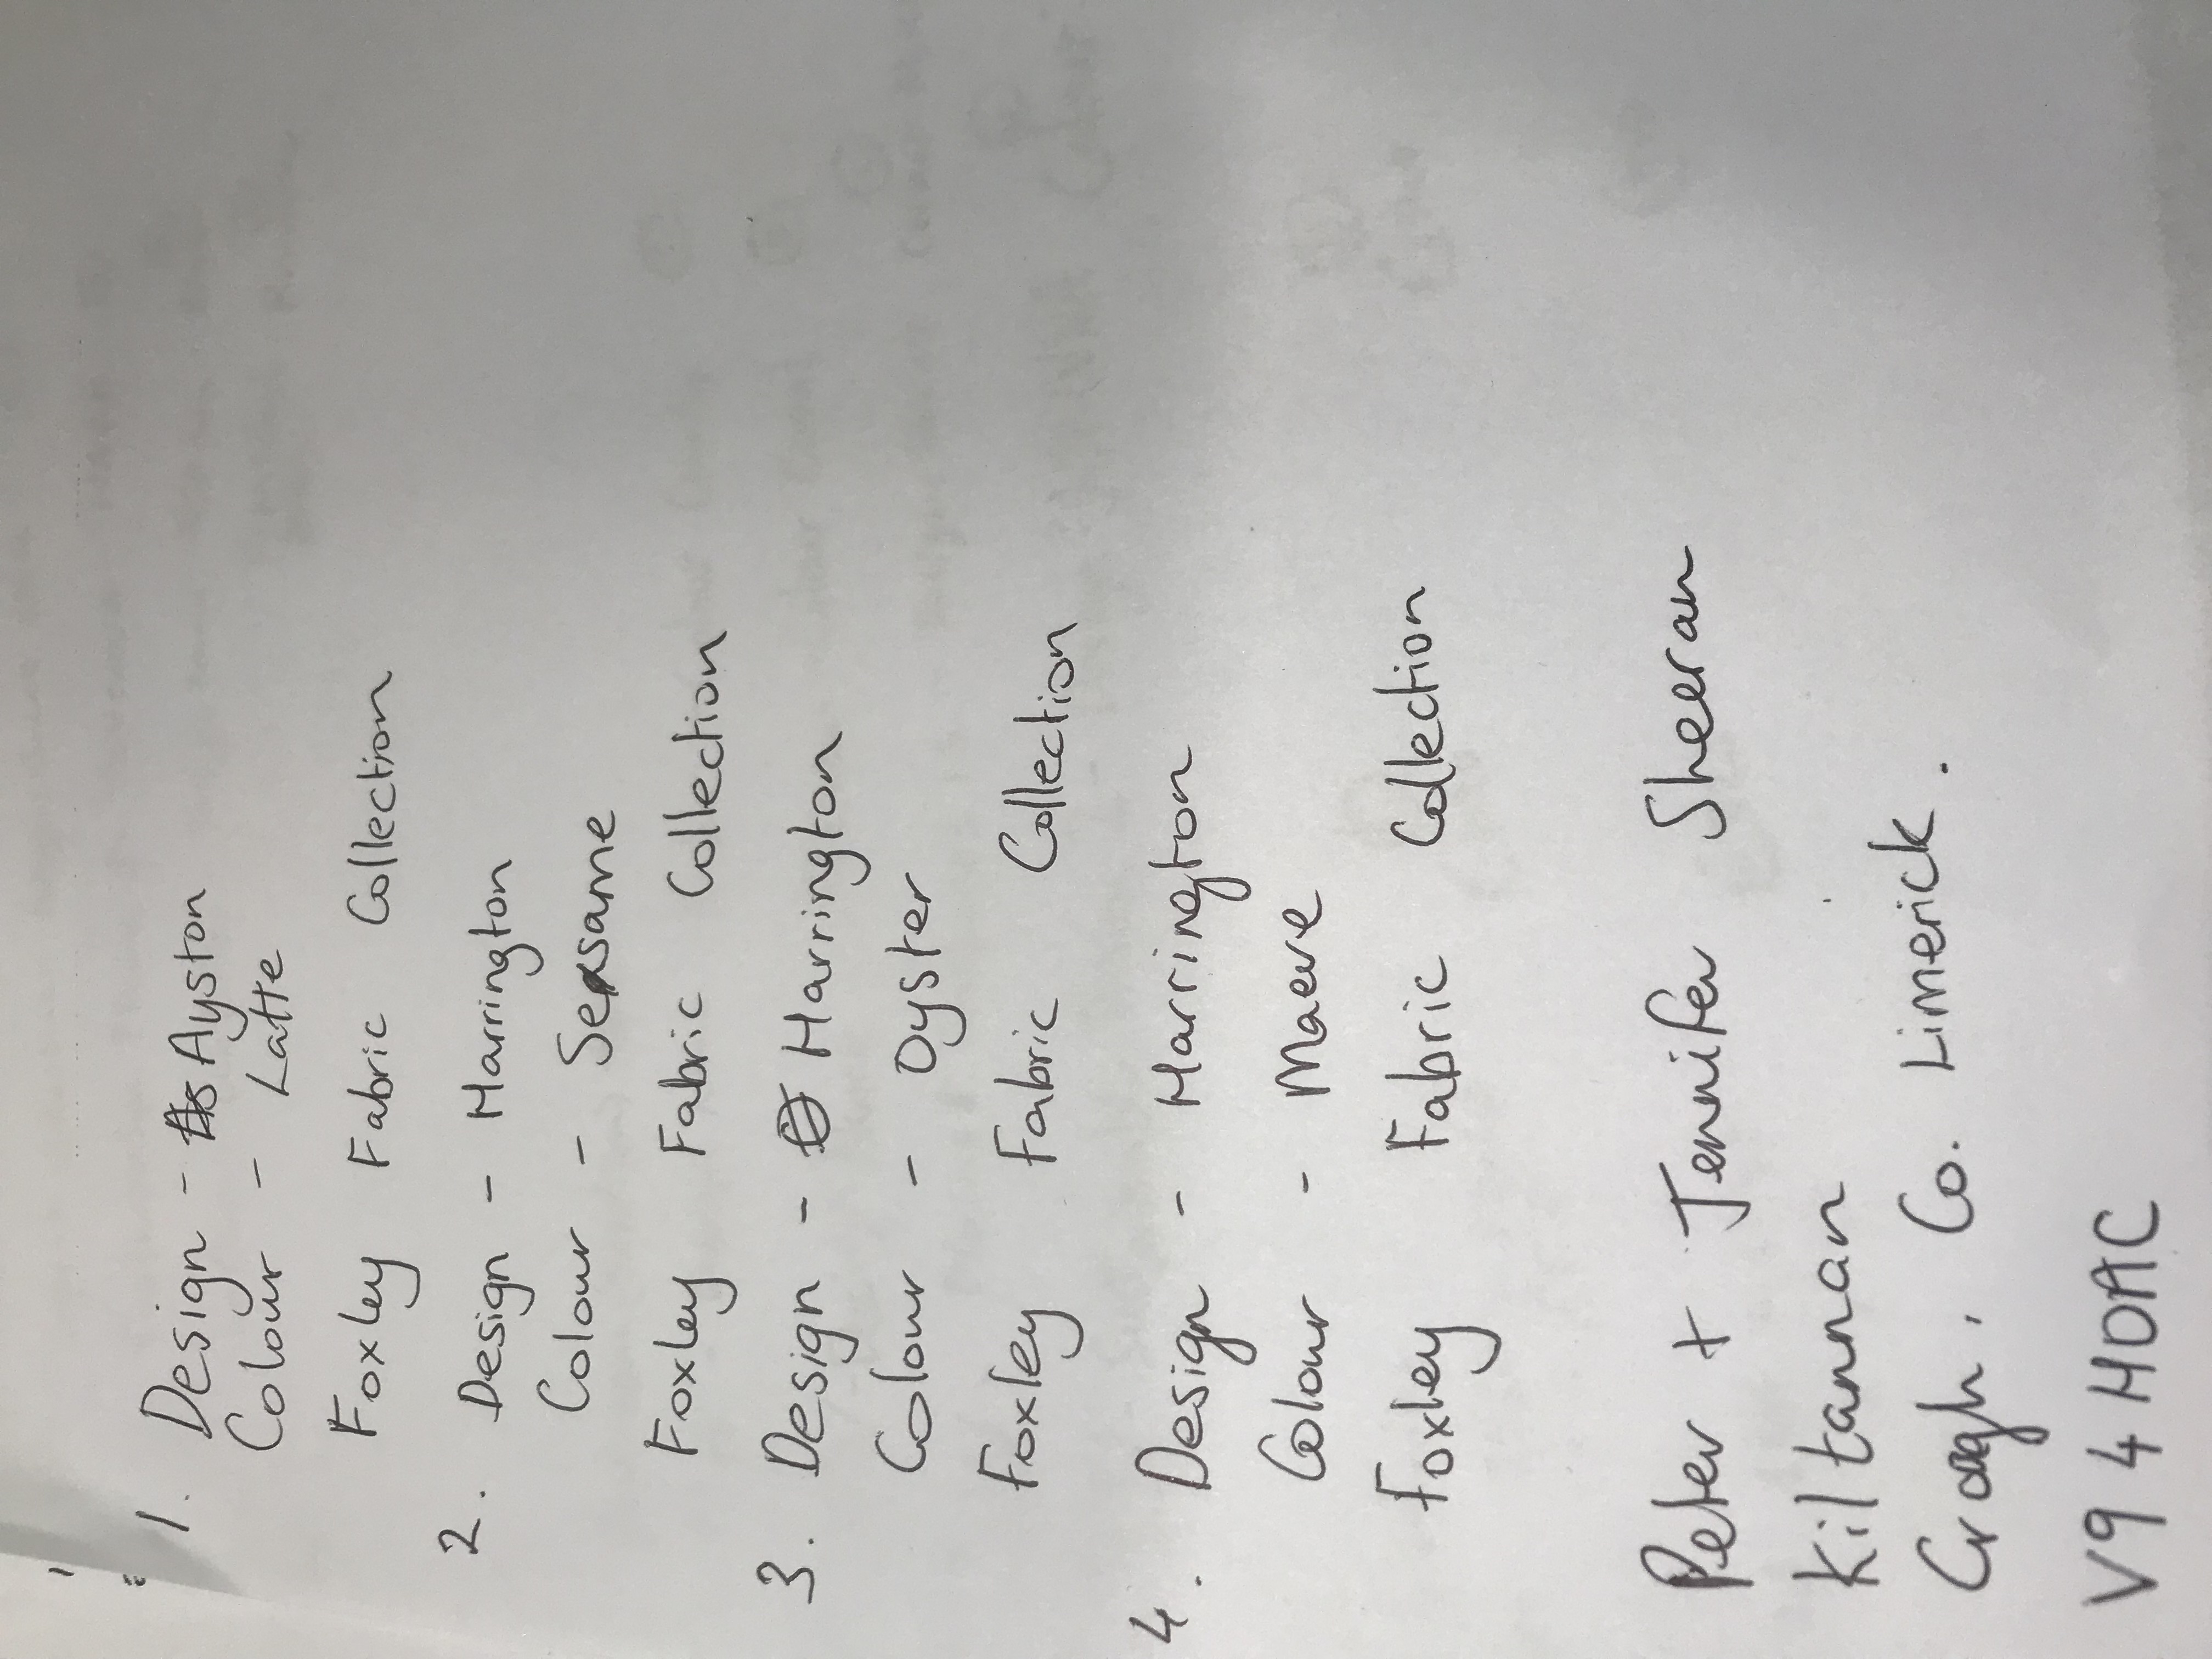 1. Design - Ayston
Colour - Latte
Foxley Fabric Collection
2. Design - Harrington
Colour - Sesame
Foxley Fabric Collection
3. Design - Harrington
Colour - Oyster
Foxley Fabric Collection
4. Design - Harrington
Colour - Maeve
Foxley Fabric Collection
Peter + Jennifer Sheeran
Kiltannan
Croagh, Co. Limerick.
V94H0AC